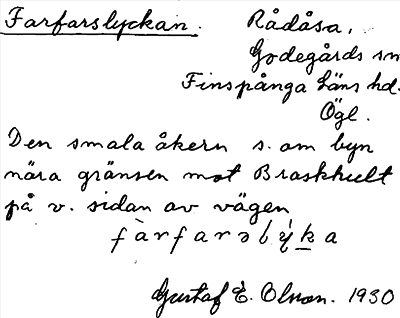 Farfarslyckan. Rådåsa,
Godegårds sn
Finspånga läns hd.
Ögl.
Den smala åkern s. om byn
nära gränsen mot Braskhult
på v. sidan av vägen
Gustaf E. Olson. 1930